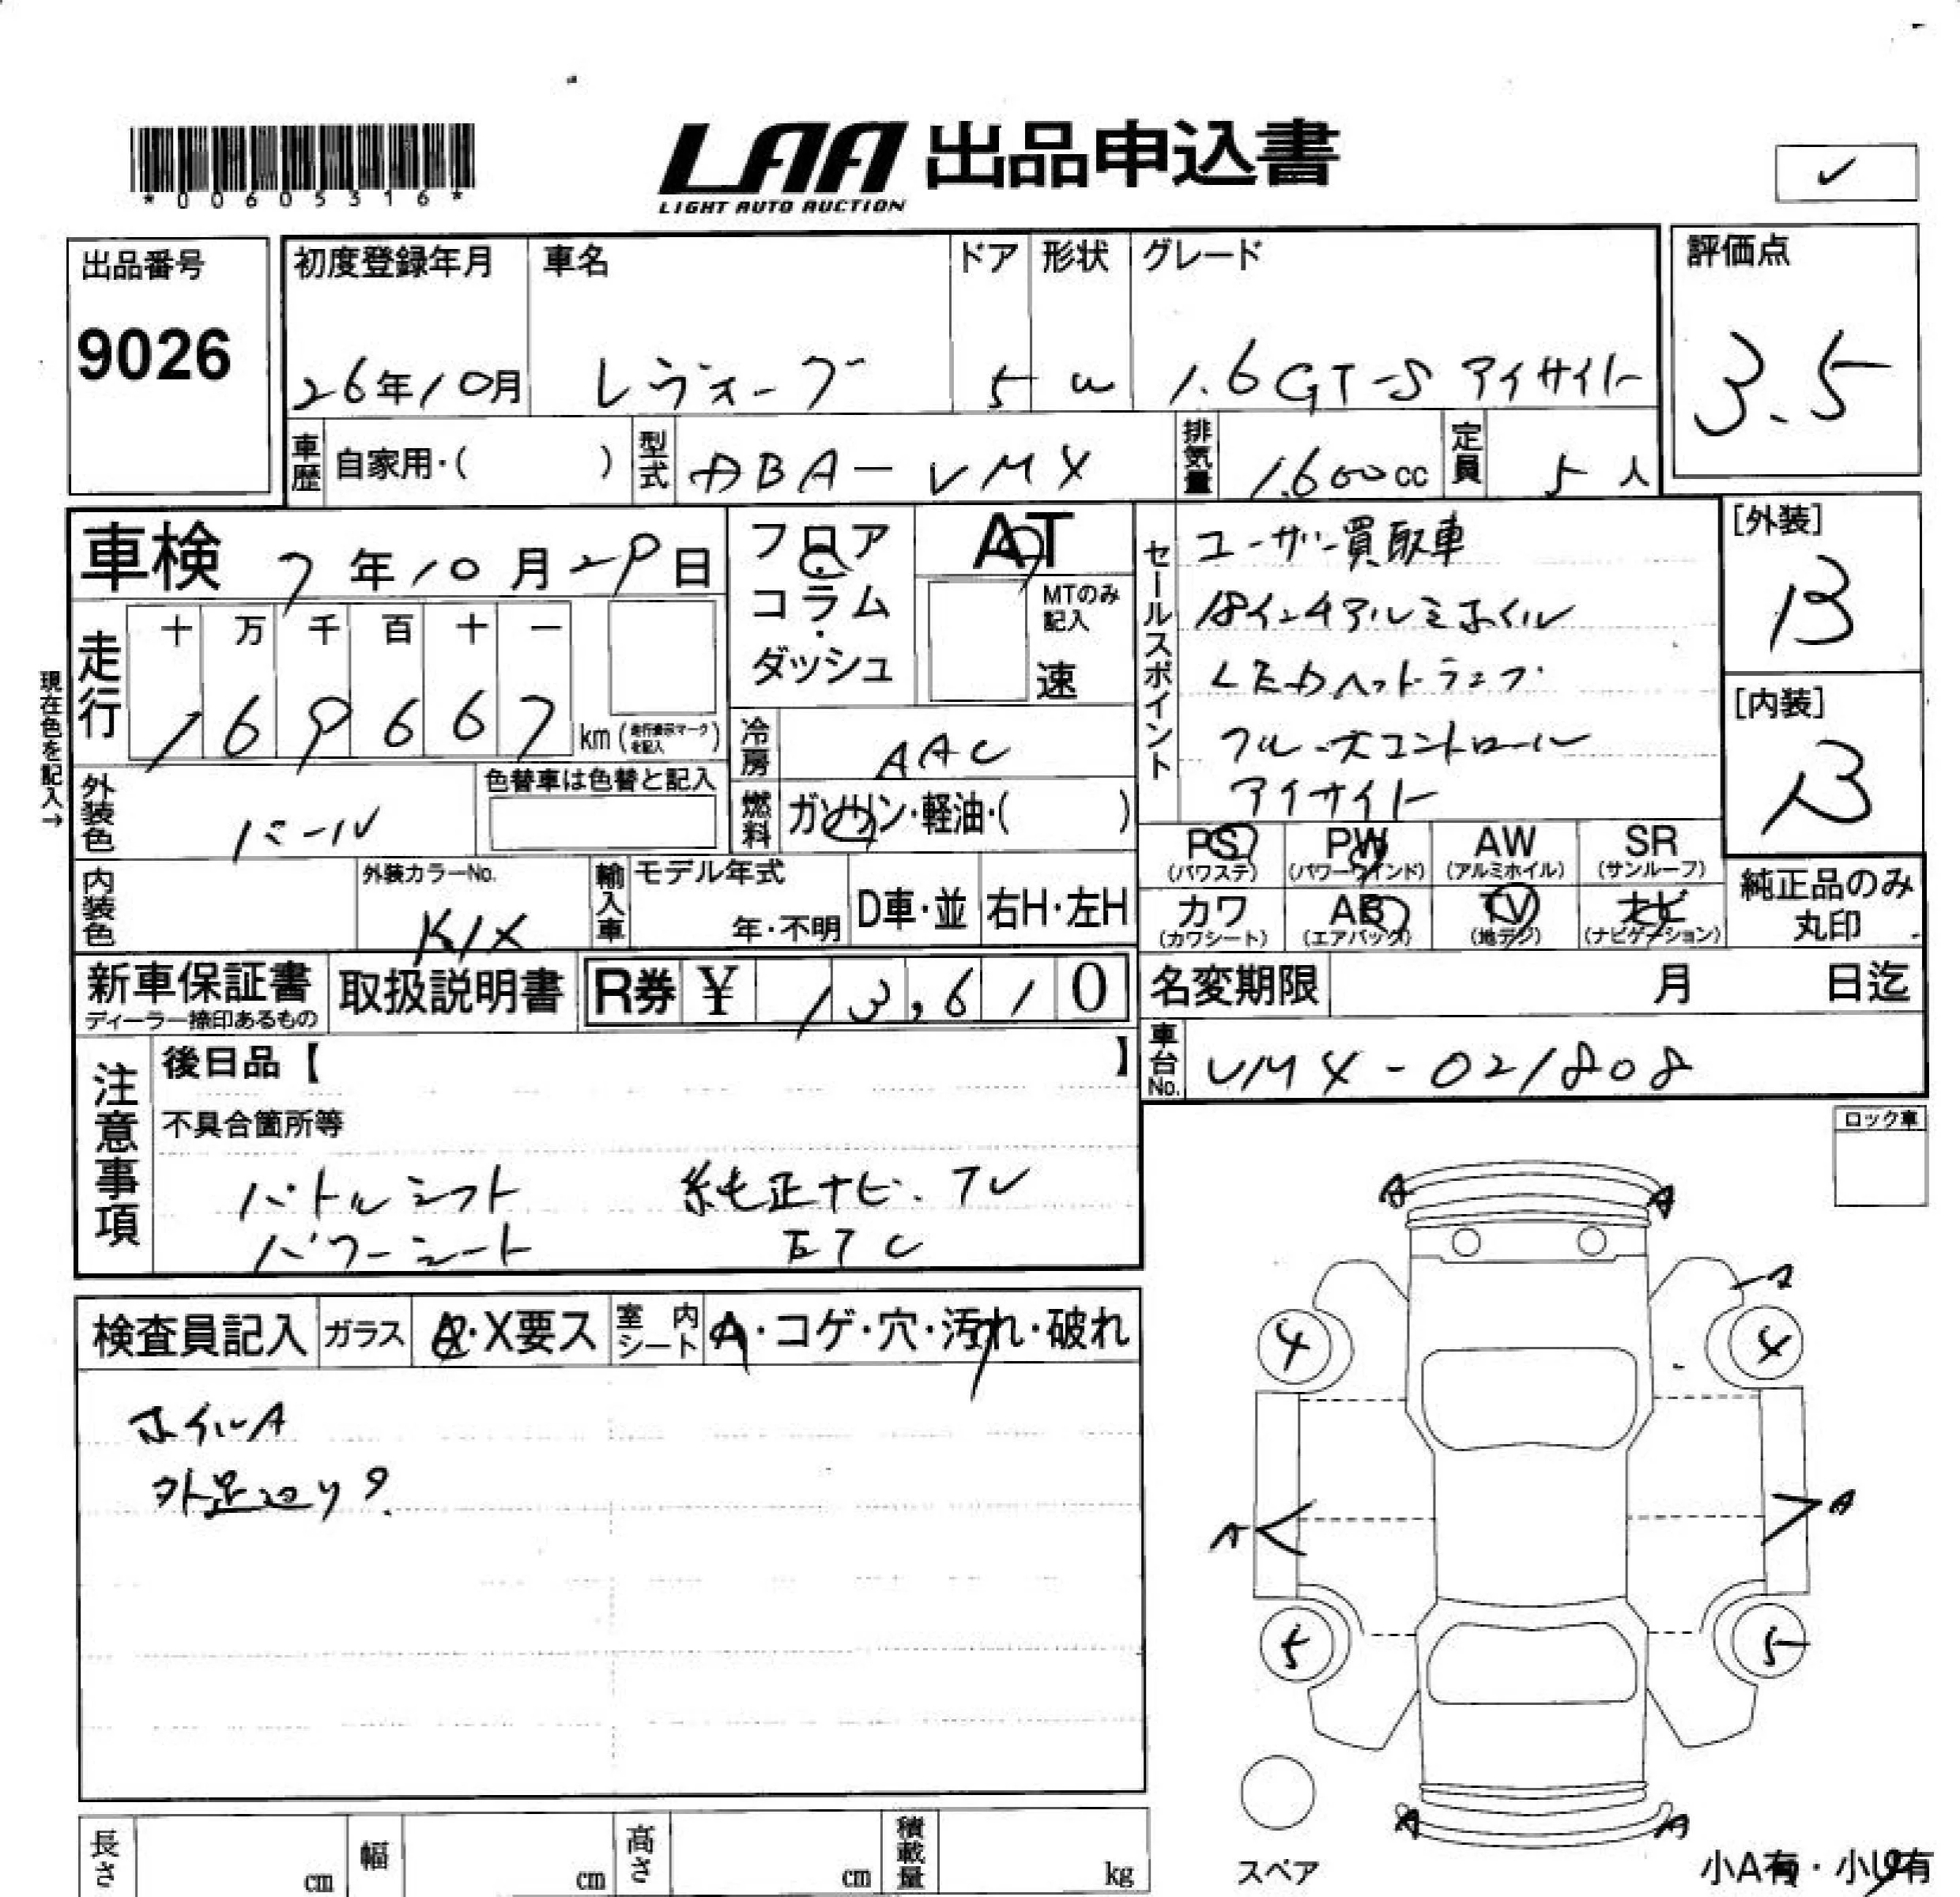 *00605316*
LAA 出品申込書
LIGHT AUTO AUCTION
✓
出品番号
9026
初度登録年月 車名 ドア 形状 グレード
26年10月 レヴォーグ 5 W 1.6GT-S アイサイト
評価点
3.5
車歴 自家用・( ) 型式 DBA-VM4 排気量 1.600cc 定員 5人
車検 7年10月29日
フロア・コラム・ダッシュ
AT
MTのみ記入
速
セールスポイント
ユーザー買取車
18インチアルミホイル
LEDヘットランプ
クルーズコントロール
アイサイト
[外装]
B
[内装]
B
現在色を記入→
走行
十 万 千 百 十 一
1 6 9 6 6 7 km (走行表示マークを記入)
冷房 AAC
外装色 パール
色替車は色替と記入
燃料 ガソリン・軽油・( )
PS (パワステ) PW (パワーウインド) AW (アルミホイル) SR (サンルーフ)
カワ (カワシート) AB (エアバック) TV (地デジ) ナビ (ナビゲーション)
純正品のみ丸印
内装色 外装カラーNo. K1X
輸入車 モデル年式 年・不明 D車・並 右H・左H
新車保証書 ディーラー捺印あるもの
取扱説明書
R券 ¥ 13,610
名変期限 月 日迄
車台No. VM4-021808
注意事項
後日品【 】
不具合箇所等
パドルシフト 純正ナビ.TV
パワーシート ETC
ロック車
検査員記入 ガラス A・X要ス 室内シート A・コゲ・穴・汚れ・破れ
ホイルA
外足廻りサ
A A
A
4 4
A A
5 5
A A
スペア
小A有・小U有
長さ cm 幅 cm 高さ cm 積載量 kg